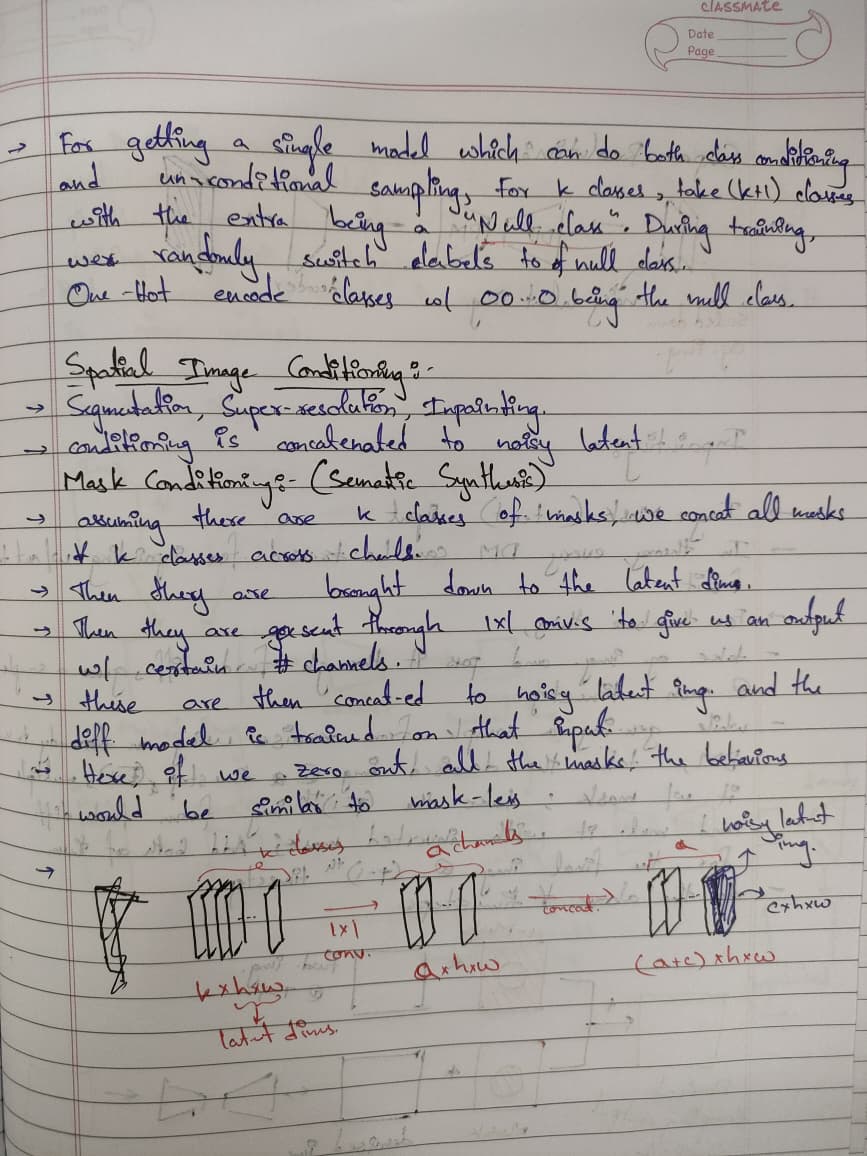 classmate
Date
Page
→ For getting a single model which can do both class conditioning
and un-conditional sampling, for k classes, take (k+1) classes
with the extra being a "Null class". During training,
we randomly switch labels to null class.
One-Hot encode classes w/ 00...0 being the null class.
Spatial Image Conditioning:-
→ Segmutation, Super-resolution, Inpainting.
→ conditioning is concatenated to noisy latent
Mask Conditioning:- (Sematic Synthesis)
→ assuming there are k classes of masks, we concat all masks
of k classes across chnls.
→ Then they are brought down to the latent dims.
→ Then they are sent through 1x1 conv.s to give us an output
w/ certain # channels.
→ these are then concat-ed to noisy latent img. and the
diff. model is trained on that input.
→ Here, if we zero out all the masks, the behaviour
would be similar to mask-less
→ k classes
a channels
a
noisy latent
img.
1x1
conv.
concat.
c×h×w
k×h×w
a×h×w
(a+c)×h×w
latent dims.